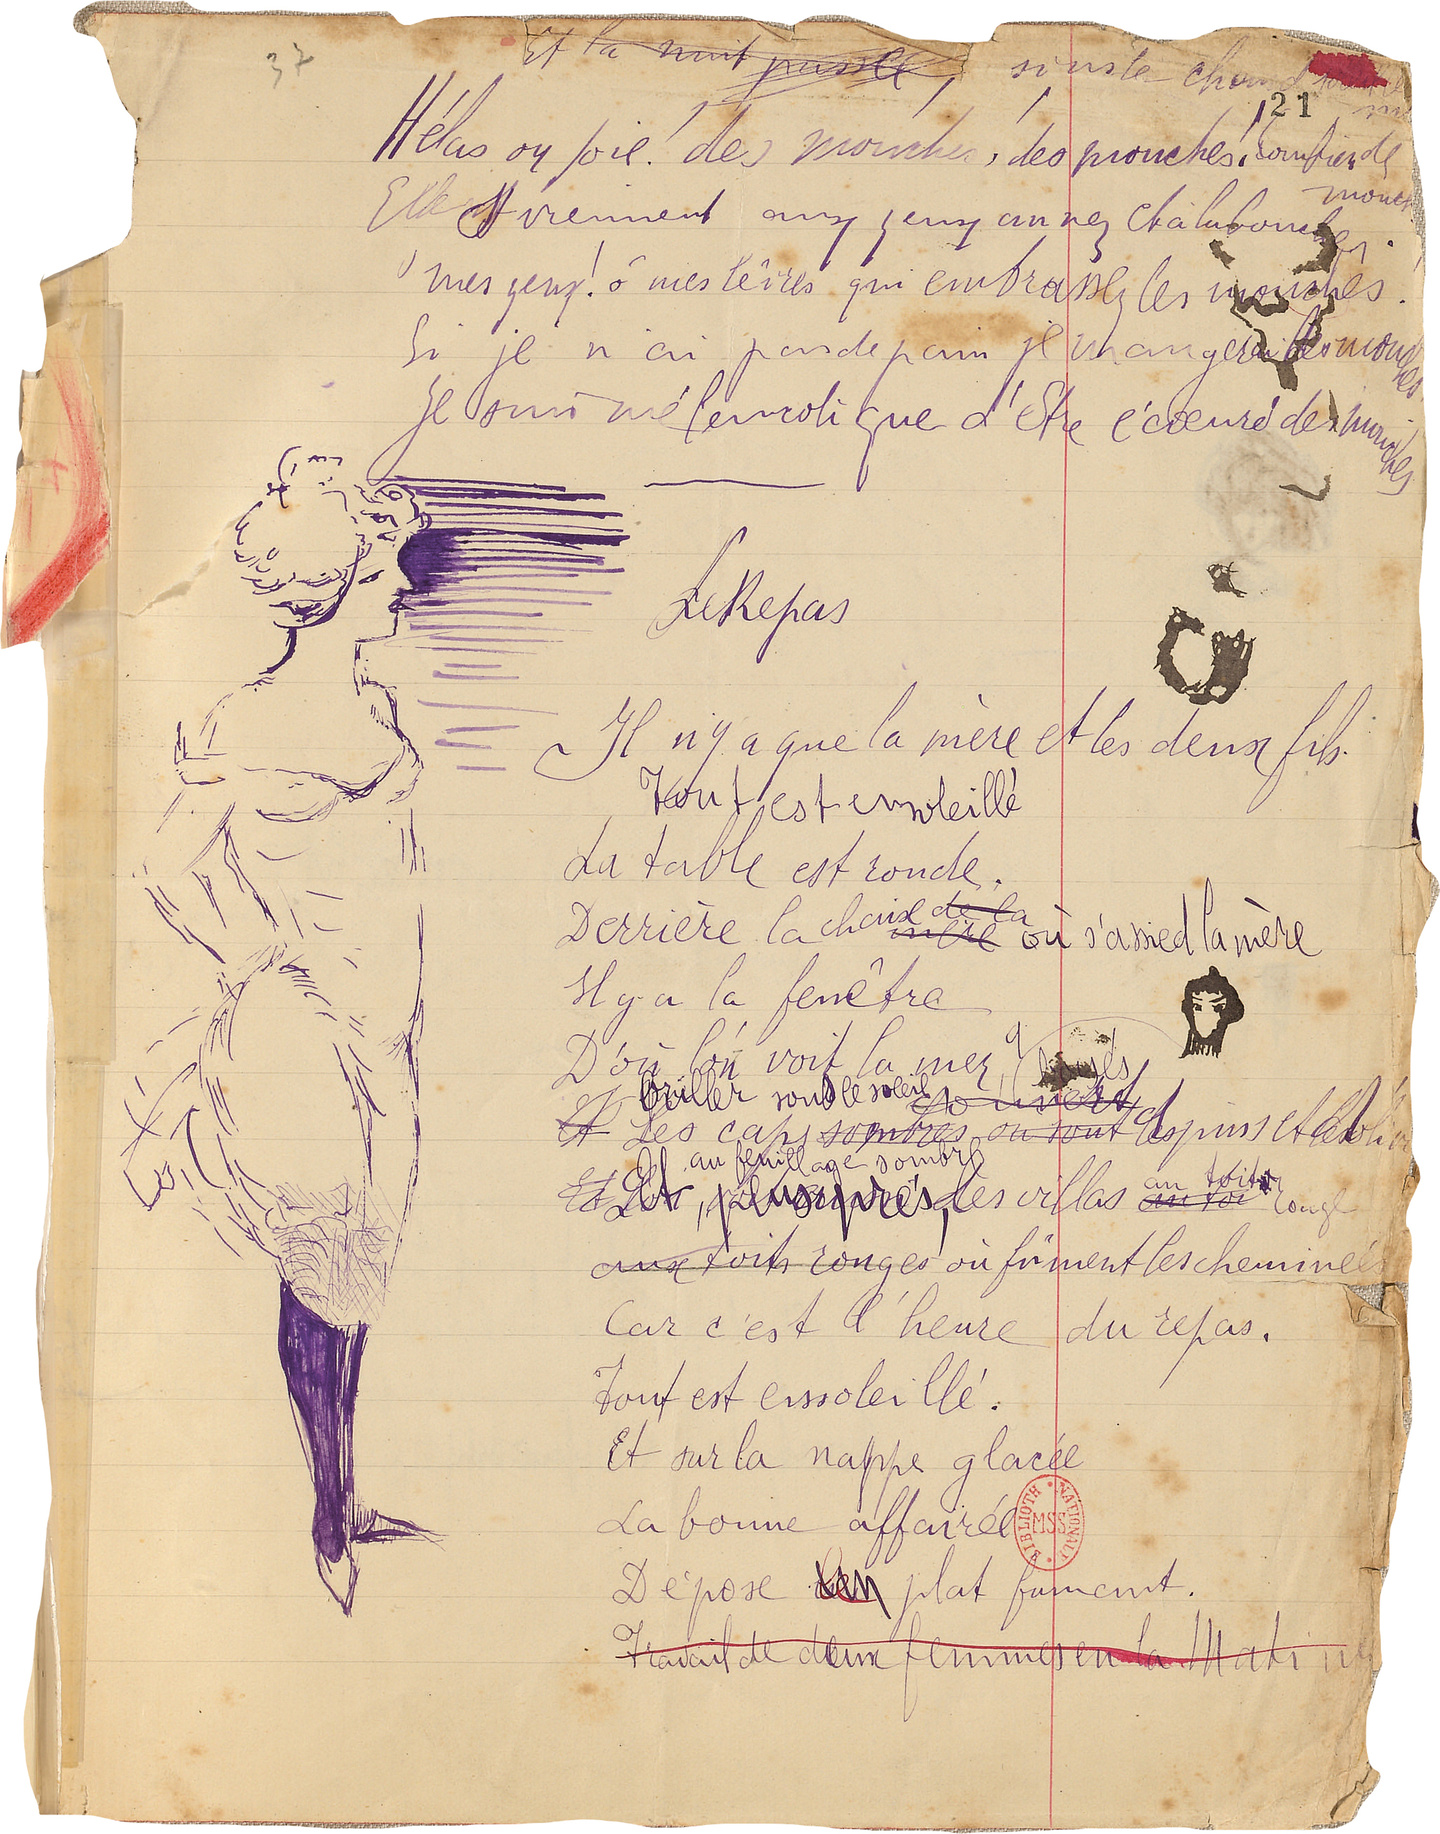 37
Et la nuit passée, si vite
21
Hélas ou joie! des mouches, des mouches, combien de
mouches
Elles viennent aux yeux au nez et à la bouche
O mes yeux! ô mes lèvres qui embrassez les mouches!
Si je n'ai pas de pain je mangerai des mouches
Je suis mélancolique d'être écœuré des mouches
Le Repas
Il n'y a que la mère et les deux fils
Tout est ensoleillé
La table est ronde.
Derrière la chaise de la mère où s'assied la mère
Il y a la fenêtre
D'où l'on voit la mer
briller sous le soleil
Et Les caps sombres où sont des pins et des
au feuillage sombre
Et Et, plus près, les villas au toit au toit rouge
aux toits rouges où fûment les cheminées
Car c'est l'heure du repas.
Tout est ensoleillé.
Et sur la nappe glacée
La bonne affairée
BIBLIOTH. NATIONALE MSS
Dépose un plat fumant.
Travail de deux femmes en la